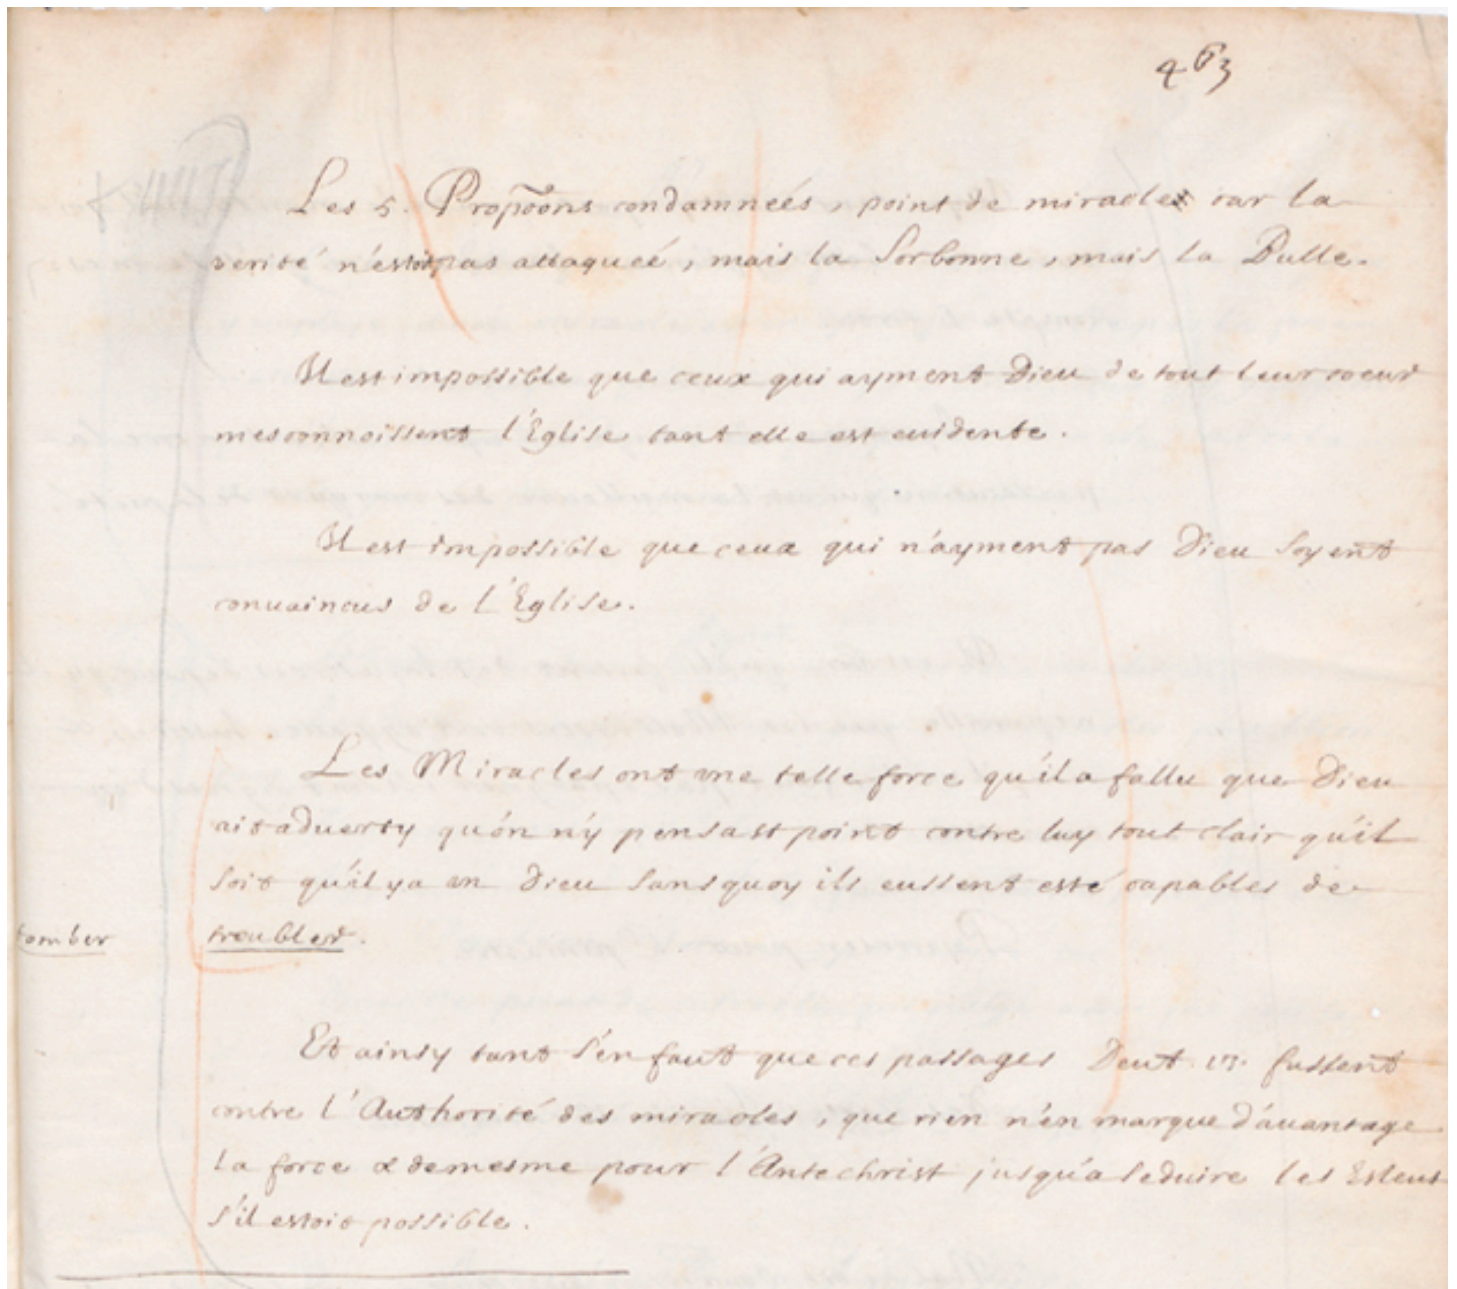 463
Les 5. Propõons condamneés, point de miracle car la
verité n'estoit pas attaqueé, mais la Sorbonne, mais la Bulle.
Il est impossible que ceux qui ayment Dieu de tout leur coeur
mesconnoissent l'Eglise tant elle est euidente.
Il est impossible que ceux qui n'ayment pas Dieu soyent
conuaincus de l'Eglise.
Les Miracles ont vne telle force qu'il a fallu que Dieu
ait aduerty qu'on n'y pensast point contre luy tout clair qu'il
soit qu'il y a vn Dieu sans quoy ils eussent esté capables de
tomber troubler.
Et ainsy tant s'en faut que ces passages Deut. 13. fussent
contre l'Authorité des miracles, que rien n'en marque d'auantage
la force & de mesme pour l'Antechrist jusqu'a seduire les Esleus
s'il estoit possible.